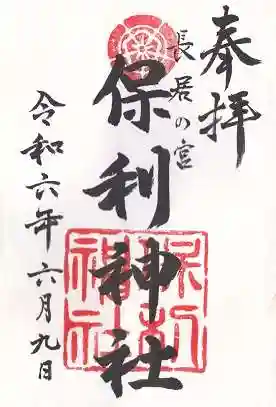 奉拝
長居の宮
保利神社
令和六年六月九日